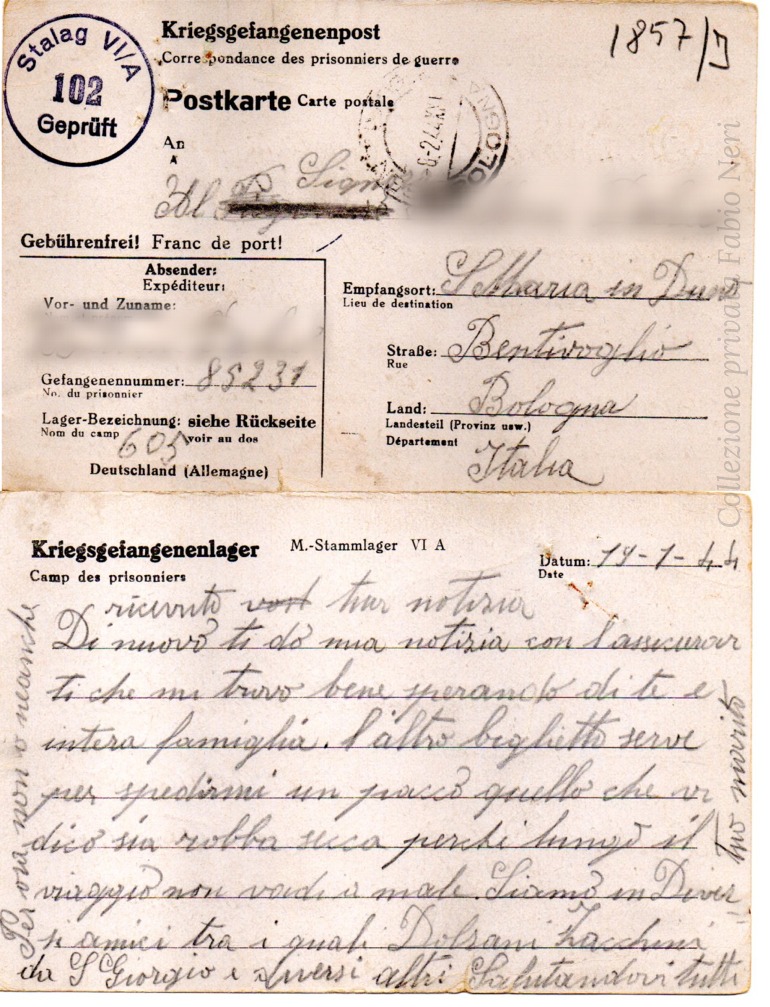 Stalag VI/A
102
Geprüft
Kriegsgefangenenpost
Correspondance des prisonniers de guerre
1857/J
Postkarte Carte postale
An
A
Al Sign
Gebührenfrei! Franc de port!
Absender:
Expéditeur:
Vor- und Zuname:
Gefangenennummer: 85231
No. du prisonnier
Lager-Bezeichnung: siehe Rückseite
Nom du camp voir au dos
605
Deutschland (Allemagne)
Empfangsort: S Maria in Duno
Lieu de destination
Straße: Bentivoglio
Rue
Land: Bologna
Landesteil (Provinz usw.)
Département
Italia
Collezione privata Fabio Neri
Kriegsgefangenenlager M.-Stammlager VI A
Camp des prisonniers
Datum: 19-1-44
Date
ricevuto vost tua notizia
Di nuovo ti dò mia notizia con l'assicurar
ti che mi trovo bene sperando di te e
intera famiglia. l'altro beglietto serve
per spedirmi un pacco quello che vi
dico sia robba secca perchi lungo il
viaggio non vadi a male. Siamo in Diver
si amici tra i quali Dolsani Zacchini
da S Giorgio e diversi altri Salutandovi tutti
tuo marito
Per ora non o neanche